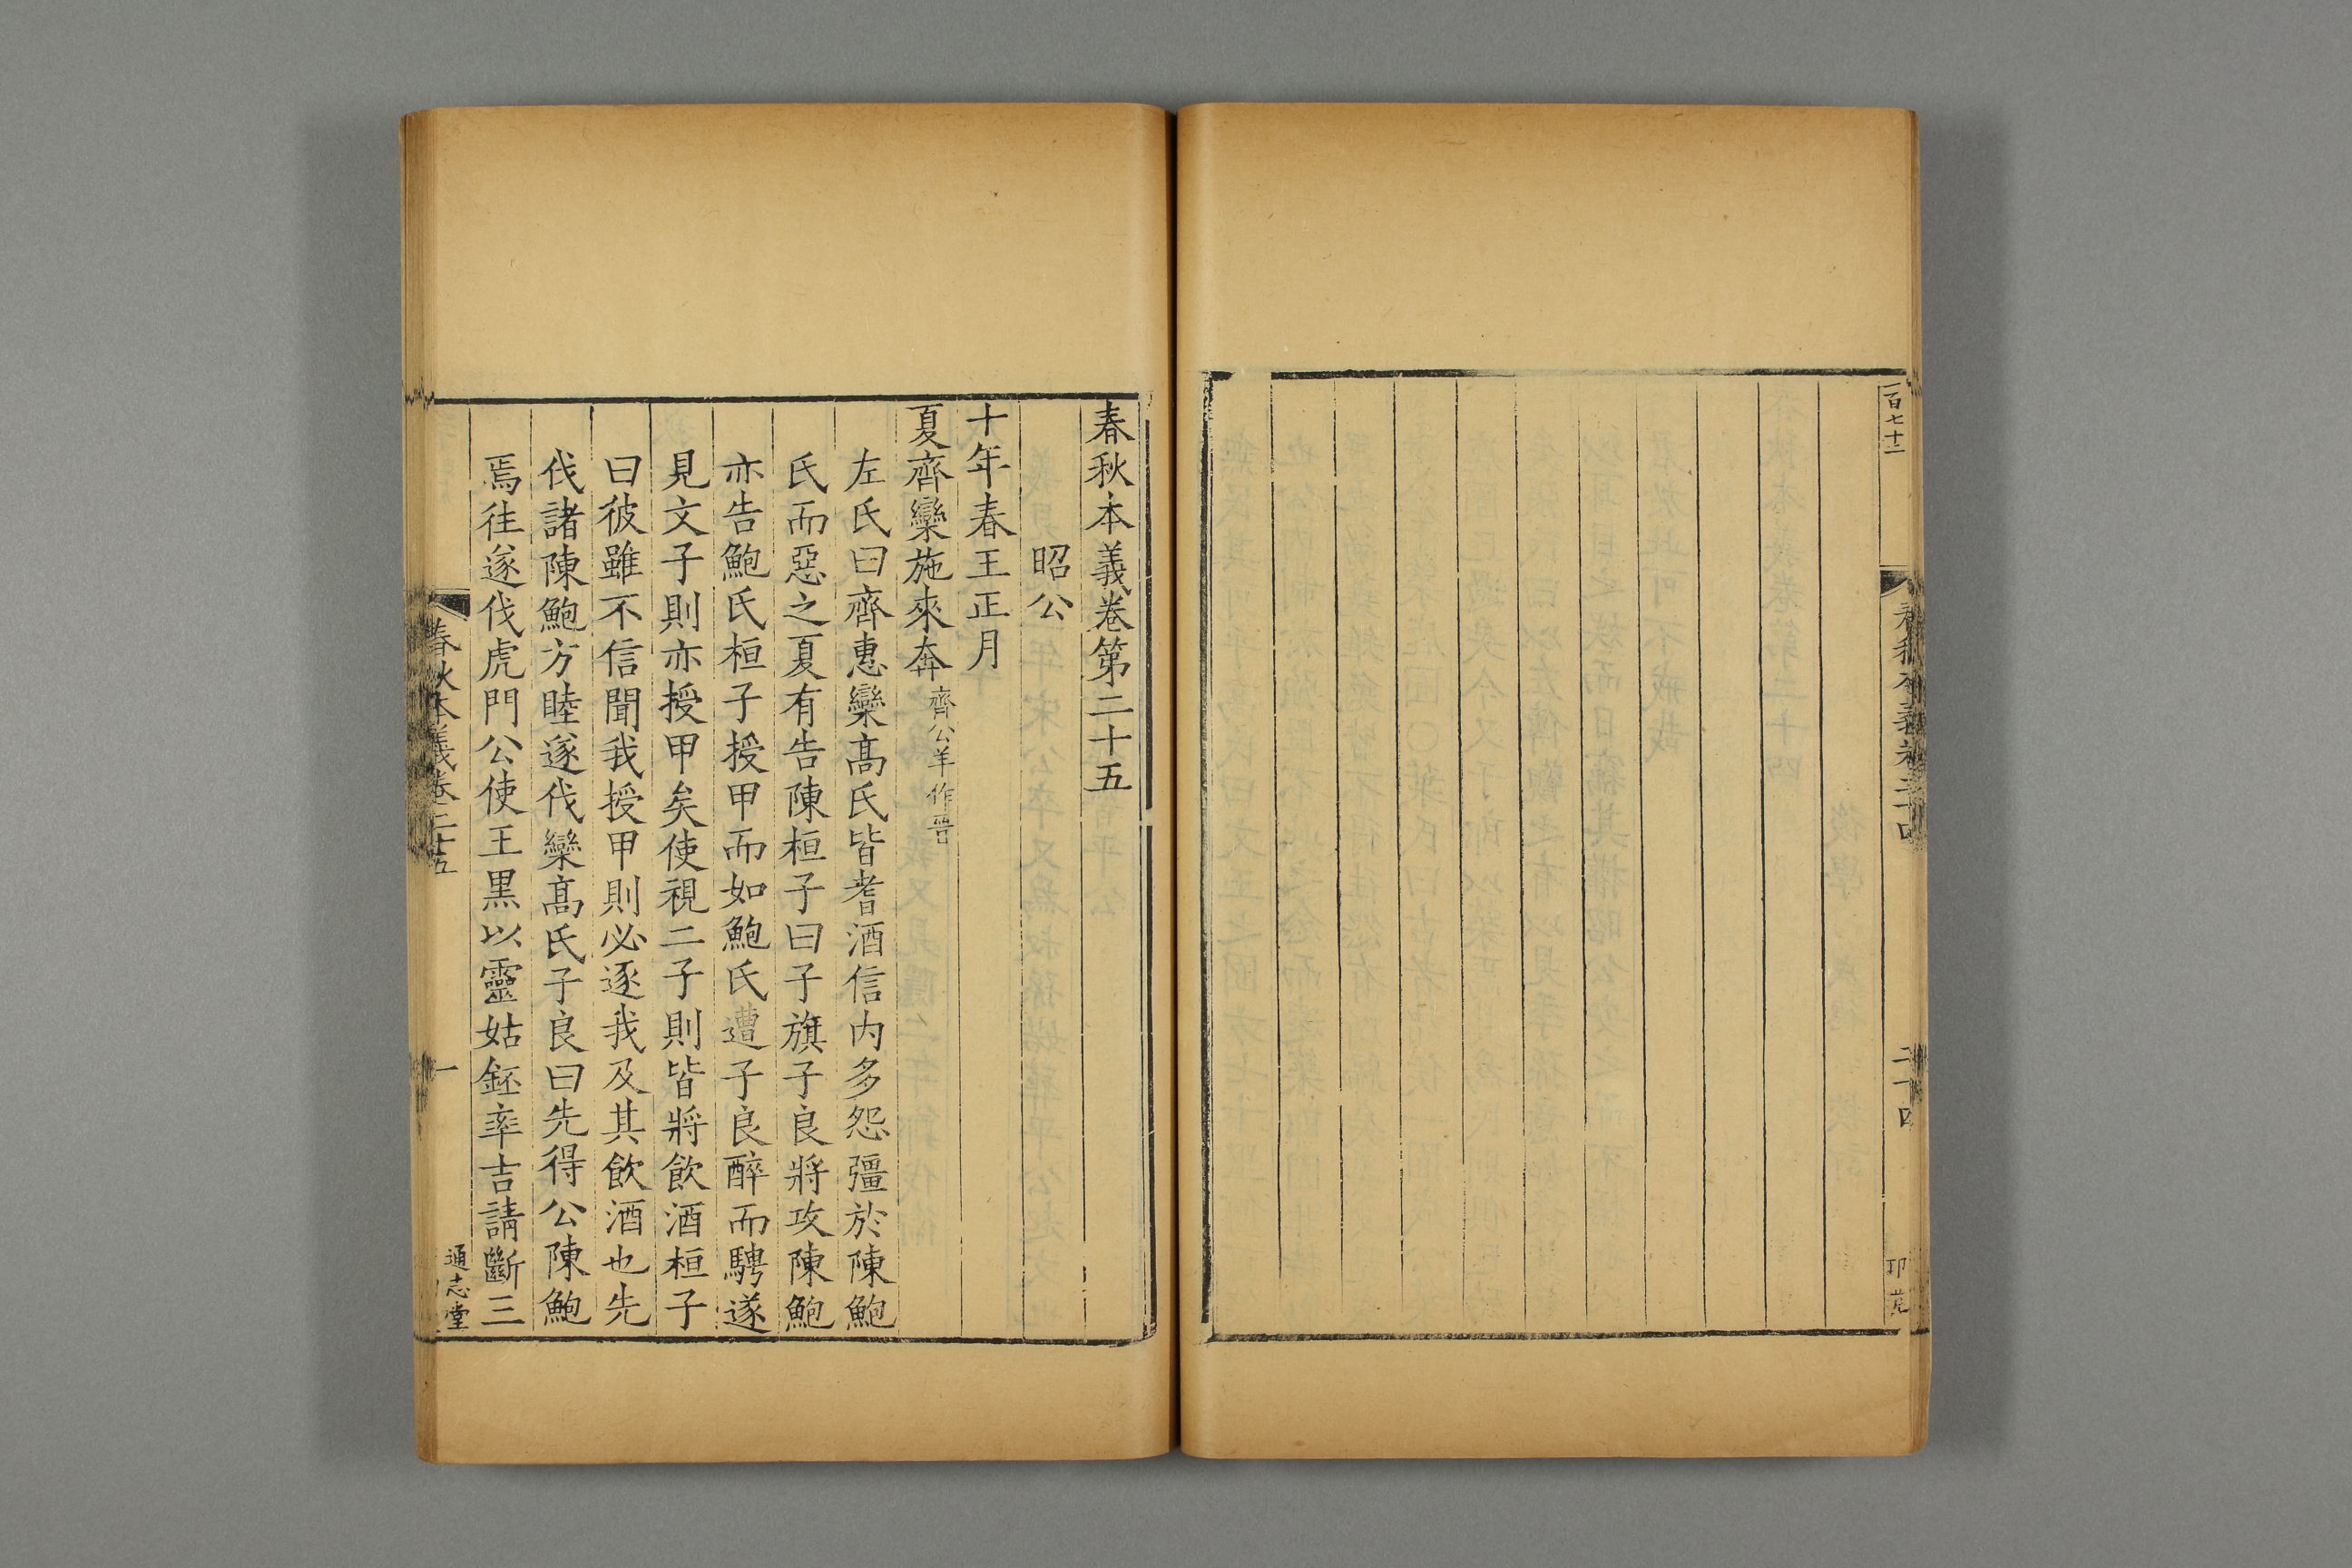 一百七十二
春秋本義卷二十四
二十四
春秋本義卷第二十五
昭公
十年春王正月
夏齊欒施來奔齊公羊作晉
左氏曰齊惠欒高氏皆耆酒信内多怨彊於陳鮑
氏而惡之夏有告陳桓子曰子旗子良將攻陳鮑
亦告鮑氏桓子授甲而如鮑氏遭子良醉而騁遂
見文子則亦授甲矣使視二子則皆將飲酒桓子
曰彼雖不信聞我授甲則必逐我及其飲酒也先
伐諸陳鮑方睦遂伐欒高氏子良曰先得公陳鮑
焉往遂伐虎門公使王黒以靈姑鉟率吉請斷三
春秋本義卷二十五
一
通志堂